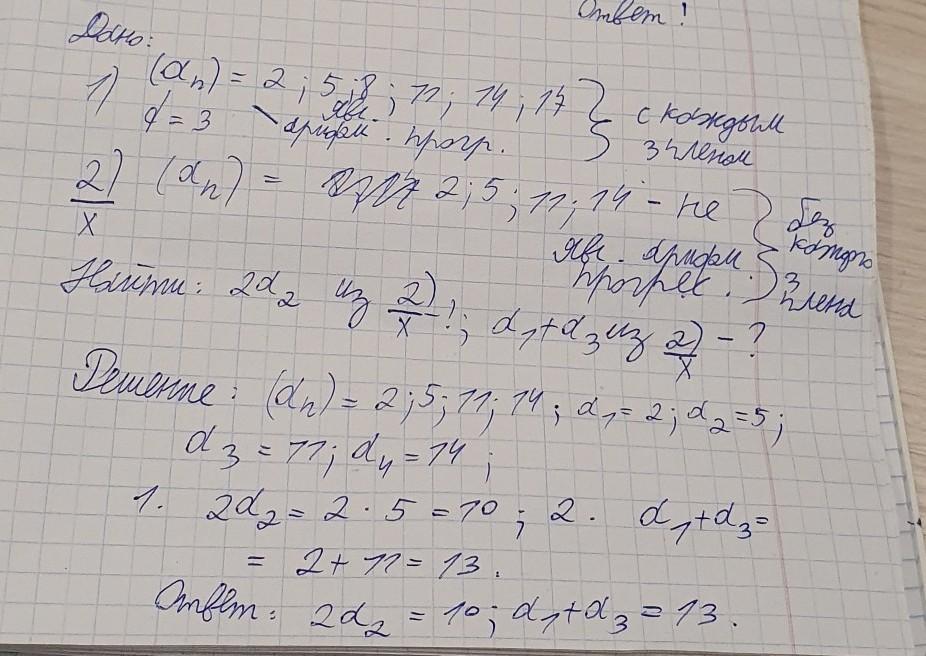 Ответ!
Дано:
1) (a_n) = 2; 5; 8; 11; 14; 17 } с каждым
d = 3 \ явл. арифм. прогр. 3 членом
2)/x (a_n) = 2; 5; 11; 14 - не } без
явл. арифм. каждого
прогрес. 3 члена
Найти: 2a_2 из 2)/x -!; a_1+a_3 из 2)/x - ?
Решение: (a_n) = 2; 5; 11; 14; a_1 = 2; a_2 = 5;
a_3 = 11; a_4 = 14;
1. 2a_2 = 2 · 5 = 10; 2. a_1+a_3=
= 2 + 11 = 13.
Ответ: 2a_2 = 10; a_1+a_3 = 13.